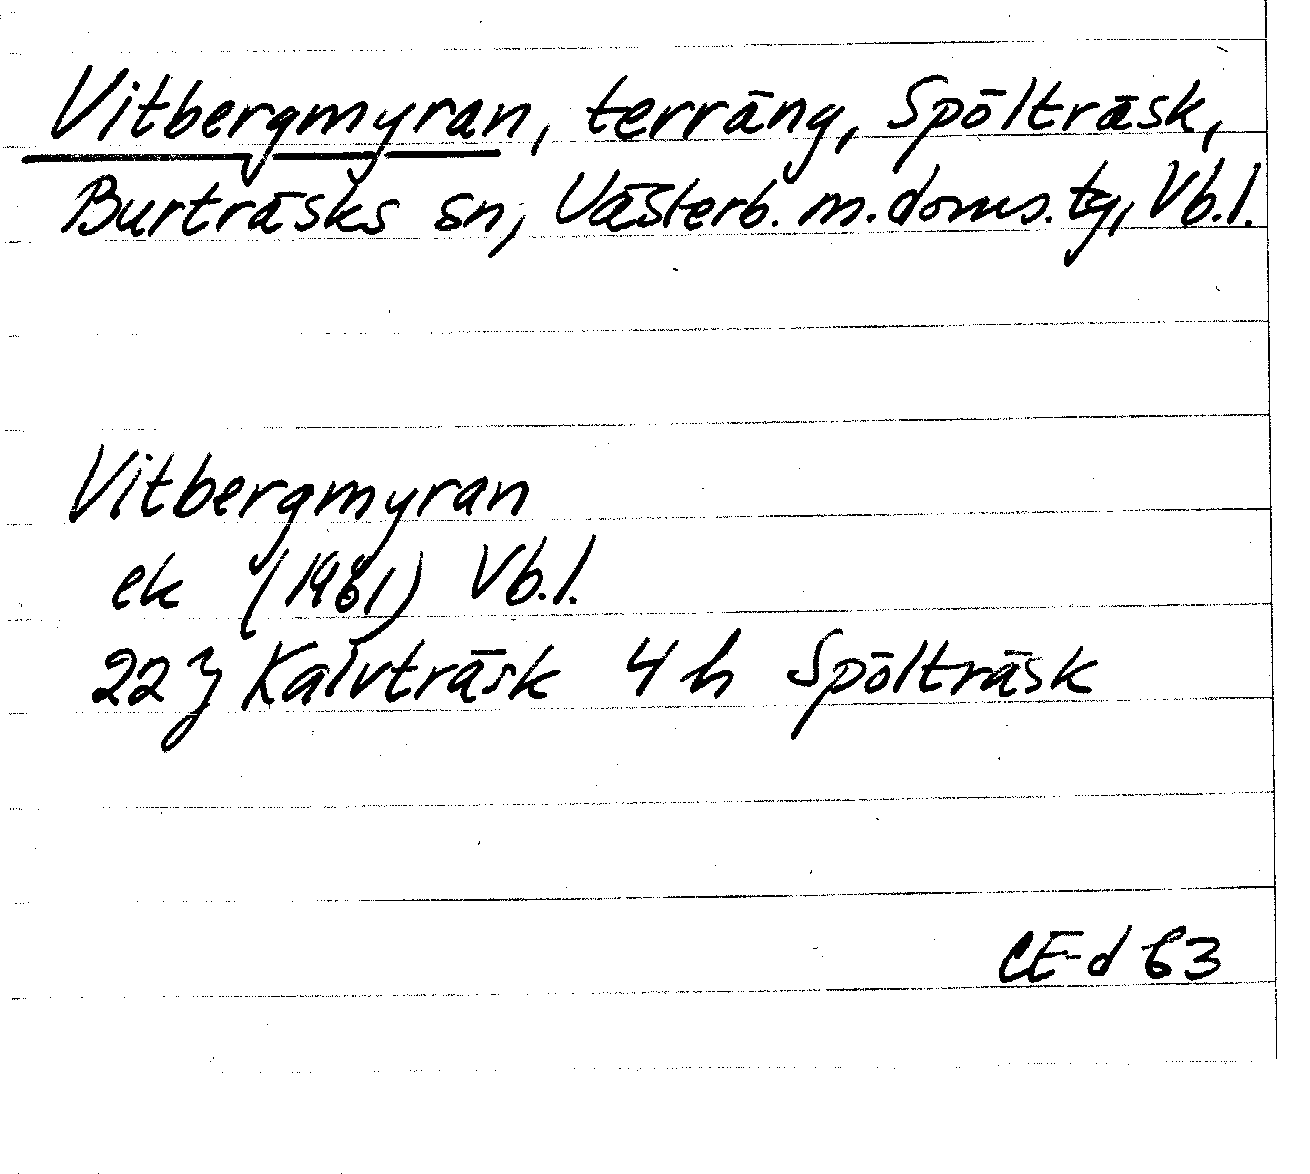 Vitbergmyran, terräng, Spölträsk,
Burträsks sn, Västerb. m. doms. tg, Vb.l.
Vitbergmyran
ek (1961) Vb.l.
22 J Kalvträsk 4 h Spölträsk
CE-d 63